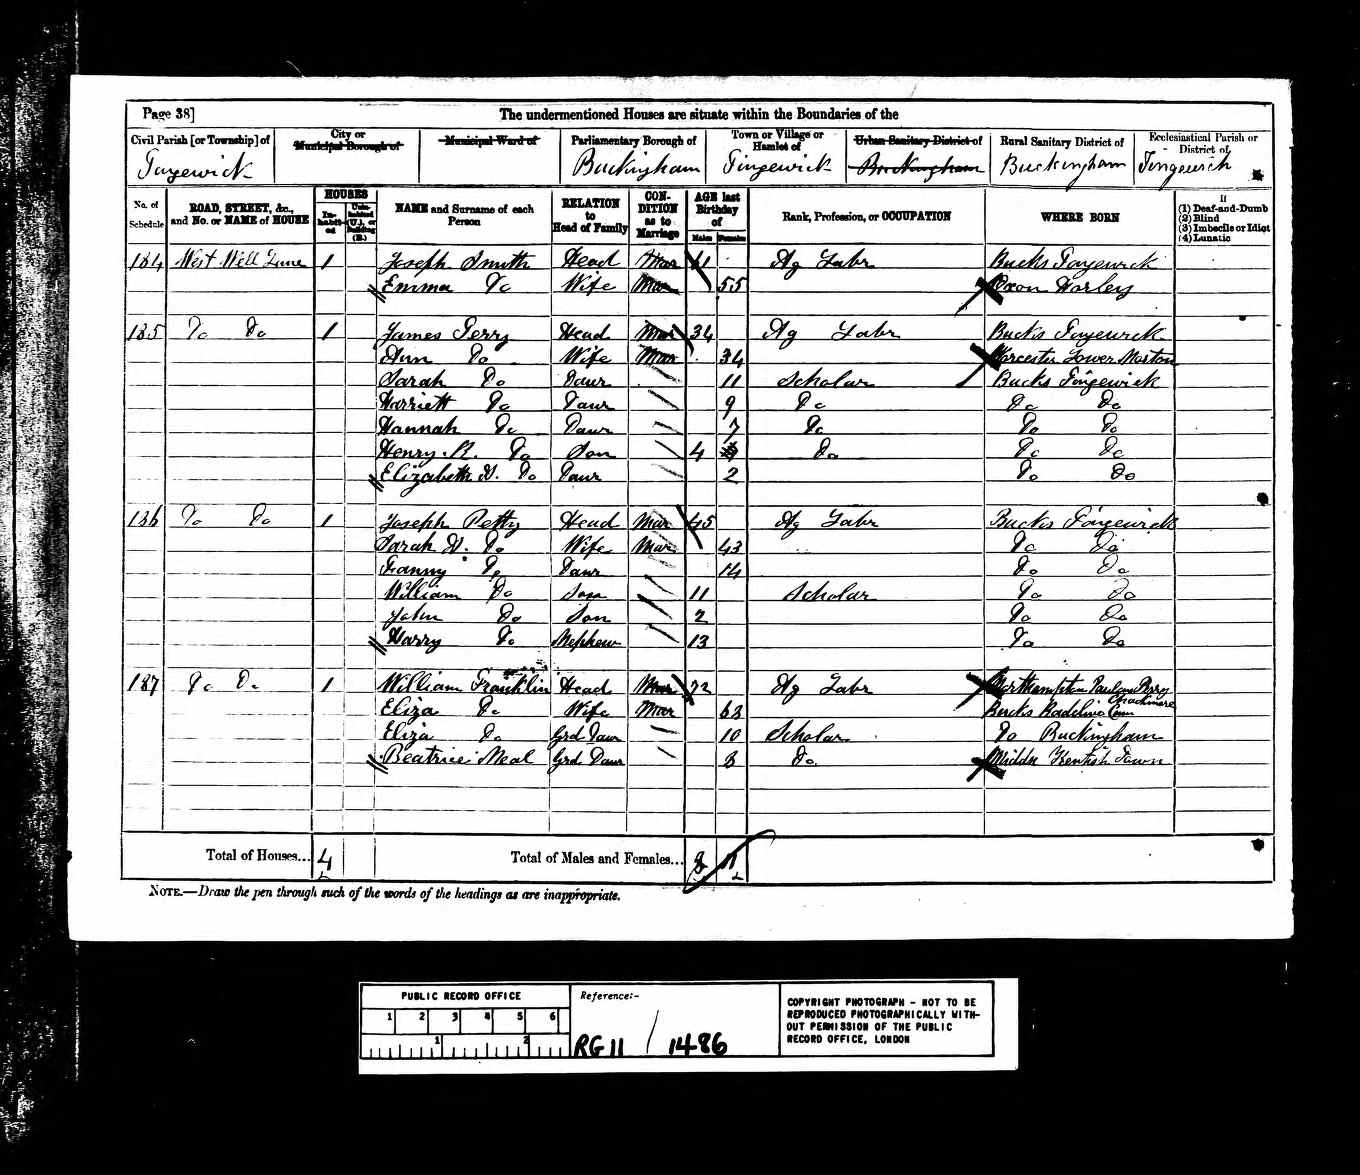 Page 38] The undermentioned Houses are situate within the Boundaries of the
Civil Parish [or Township] of City or Municipal Borough of Municipal Ward of Parliamentary Borough of Town or Village or Hamlet of Urban Sanitary District of Rural Sanitary District of Ecclesiastical Parish or District of
Tingewick Buckingham Tingewick Buckingham Buckingham Tingewick
No. of Schedule ROAD, STREET, &c., and No. or NAME of HOUSE HOUSES In-habit-ed Unin-habited (U.), or Building (B.) NAME and Surname of each Person RELATION to Head of Family CON-DITION as to Marriage AGE last Birthday of Males Females Rank, Profession, or OCCUPATION WHERE BORN If (1) Deaf-and-Dumb (2) Blind (3) Imbecile or Idiot (4) Lunatic
184 West Well Lane 1 Joseph Smith Head Mar 61 Ag Labr Bucks Tingewick
Emma Do Wife Mar 55 Oxon Horley
185 Do Do 1 James Perry Head Mar 34 Ag Labr Bucks Tingewick
Ann Do Wife Mar 34 Worcester Lower Moston
Sarah Do Daur 11 Scholar Bucks Tingewick
Harriett Do Daur 9 Do Do Do
Hannah Do Daur 7 Do Do Do
Henry. R. Do Son 4 Do Do Do
Elizabeth Do Daur 2 Do Do
186 Do Do 1 Joseph Petty Head Mar 45 Ag Labr Bucks Tingewick
Sarah Do Wife Mar 43 Do Do
Fanny Do Daur 14 Do Do
William Do Son 11 Scholar Do Do
John Do Son 2 Do Do
Harry Do Nephew 13 Do Do
187 Do Do 1 William Franklin Head Mar 72 Ag Labr Northampton Paulers Perry
Eliza Do Wife Mar 63 Bucks Radclive Cum Chackmore
Eliza Do Grd Daur 10 Scholar Do Buckingham
Beatrice Neal Grd Daur 8 Do Middx Kentish Town
Total of Houses... 4 Total of Males and Females... 8 11
NOTE.—Draw the pen through such of the words of the headings as are inappropriate.
PUBLIC RECORD OFFICE
1 2 3 4 5 6
1 2
Reference:-
RG 11 / 1486
COPYRIGHT PHOTOGRAPH - NOT TO BE
REPRODUCED PHOTOGRAPHICALLY WITH-
OUT PERMISSION OF THE PUBLIC
RECORD OFFICE, LONDON